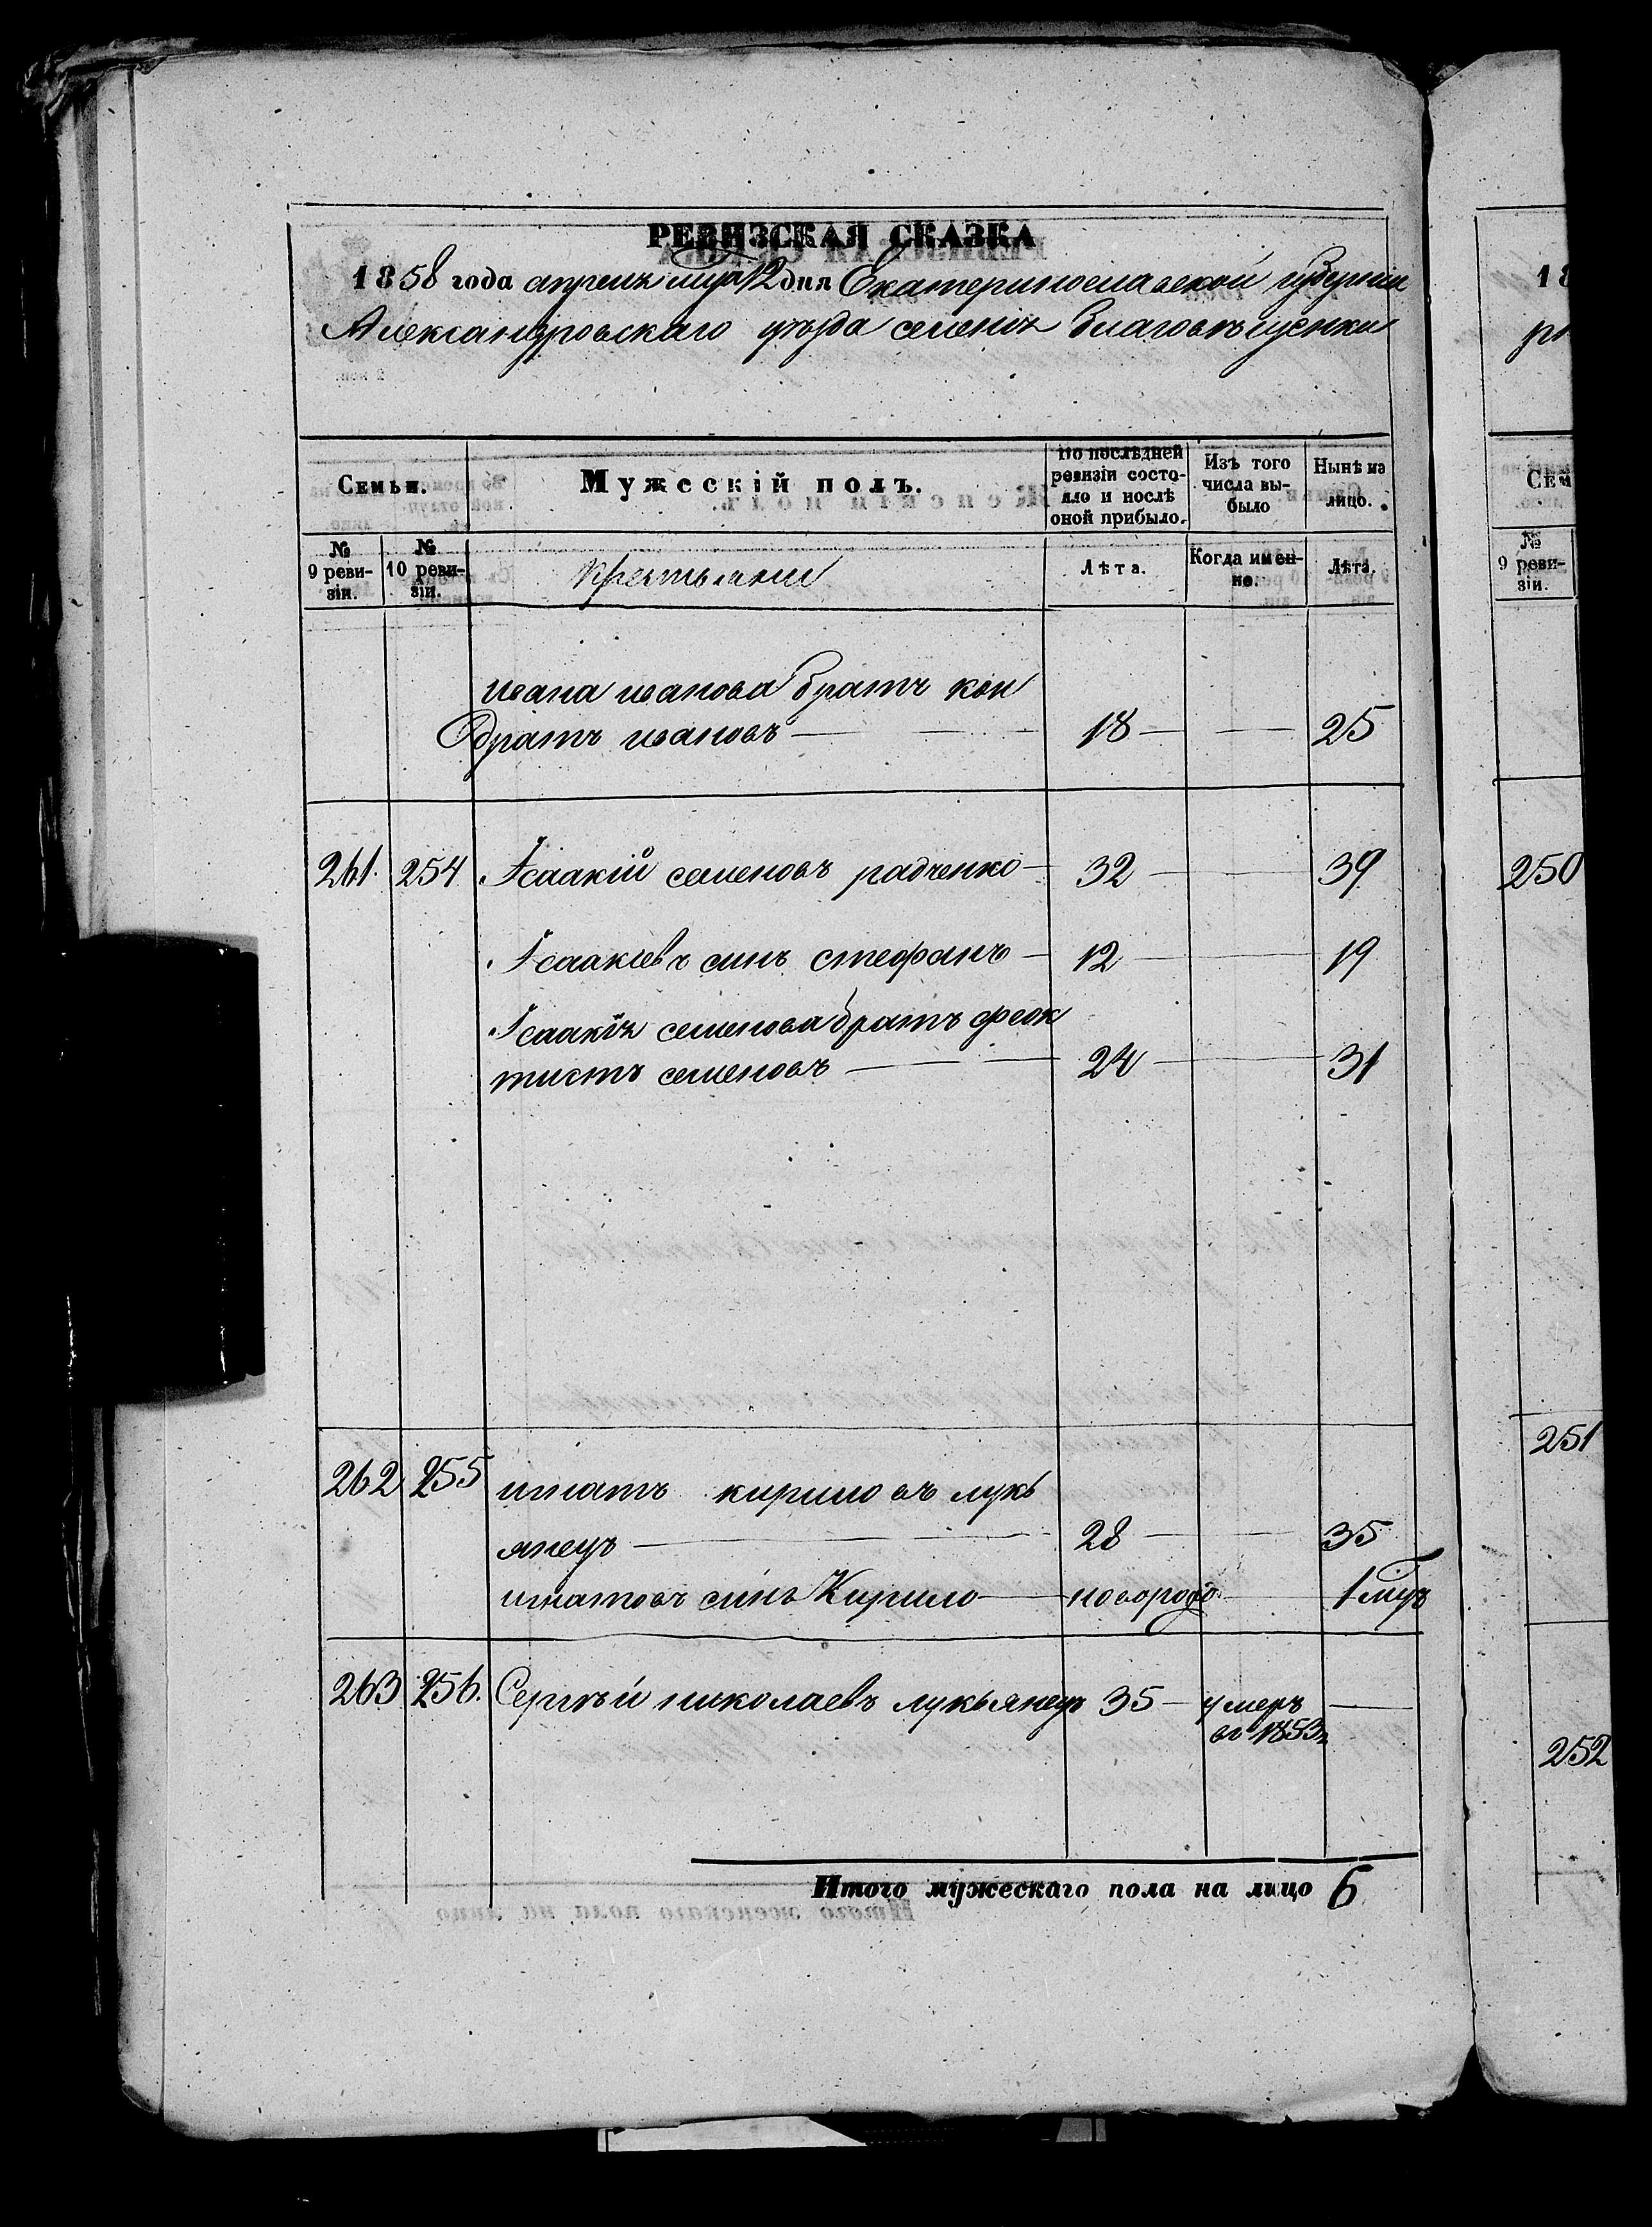 РЕВИЗСКАЯ СКАЗКА
1858 года апреля мца 12 дня Екатеринославской губернии
Александровского уезда селения Благовѣщенки
Семьи. Мужескій полъ. По послѣдней ревизіи состояло и послѣ оной прибыло. Изъ того числа выбыло Нынѣ на лицо.
№ 9 ревизіи. № 10 ревизіи. Крестьяне Лѣта. Когда именно. Лѣта.
ивана иванова братъ кон
дратъ ивановъ 18 25
261. 254 Ісаакій семеновъ радченко 32 39
Ісаакіевъ синъ стефанъ 12 19
Ісаакія семенова братъ феок
тистъ семеновъ 24 31
262 255 игнатъ кирило въ лукь
янецъ 28 35
игнатовъ синъ Кирило новорожд 1 мцъ
263 256. Сергѣй николаевъ лукьянецъ 35 умеръ
въ 1853г
Итого мужескаго пола на лицо 6
18
Сем
№ 9 ревизіи.
250
251
252